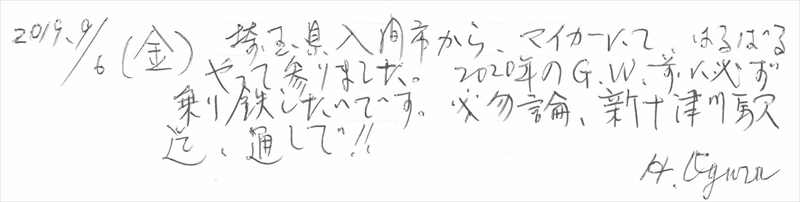 2019.9/6(金) 埼玉県入間市から、マイカーにて、はるばる
やって参りました。2020年のG.W.前に必ず
乗り鉄したいです。勿論、新十津川駅
迄、通しで!!
H. Ogura